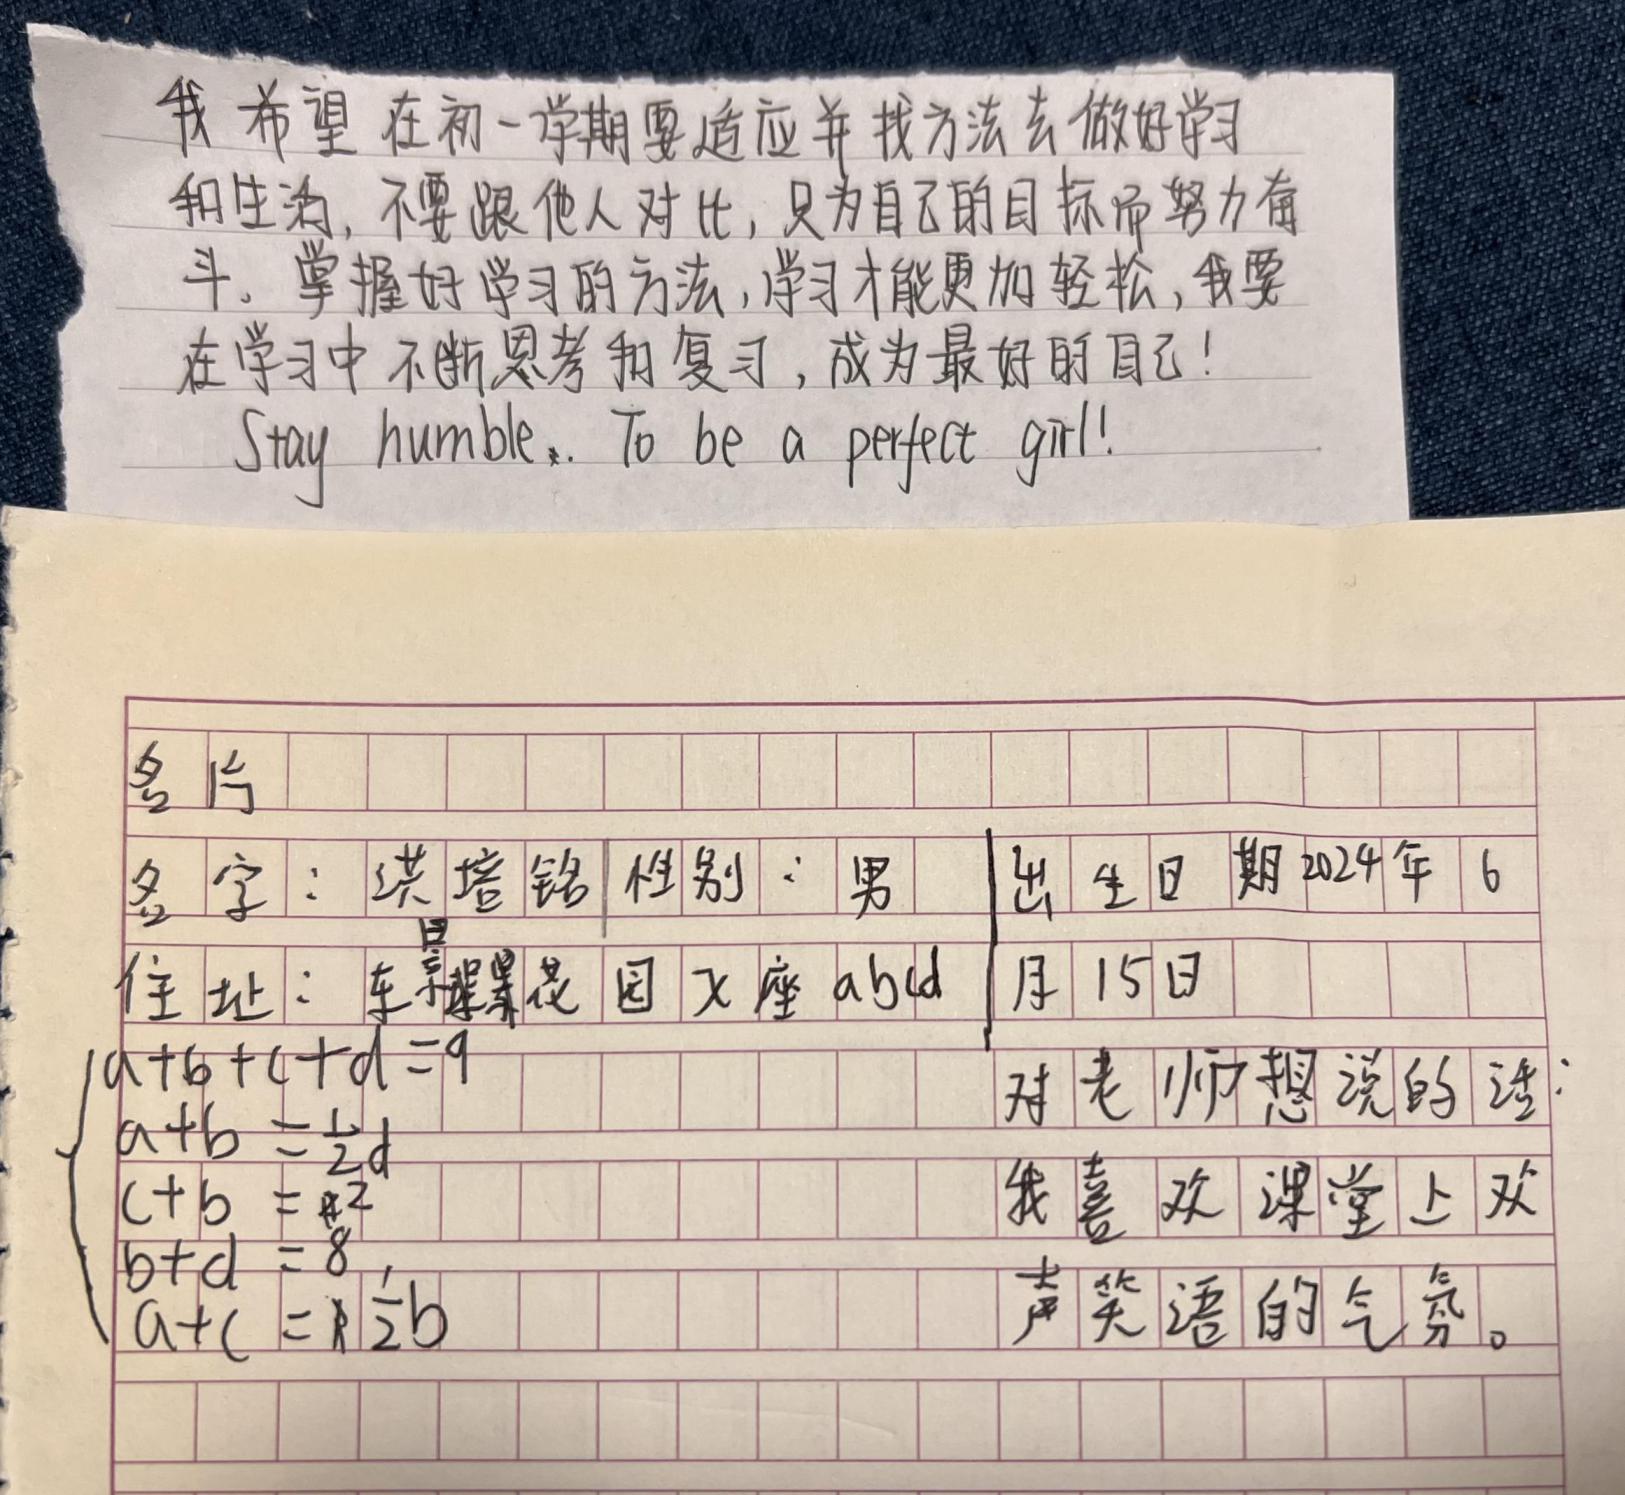 我希望在初一学期要适应并找方法去做好学习
和生活，不要跟他人对比，只为自己的目标而努力奋
斗。掌握好学习的方法，学习才能更加轻松，我要
在学习中不断思考和复习，成为最好的自己！
Stay humble. To be a perfect girl!
名片
名字：洪培铭 性别：男
住址：东景花园X座abcd
a+b+c+d=9
a+b=1/2d
c+b=2
b+d=8,
a+c=1/2b
出生日期2024年6
月15日
对老师想说的话：
我喜欢课堂上欢
声笑语的气氛。